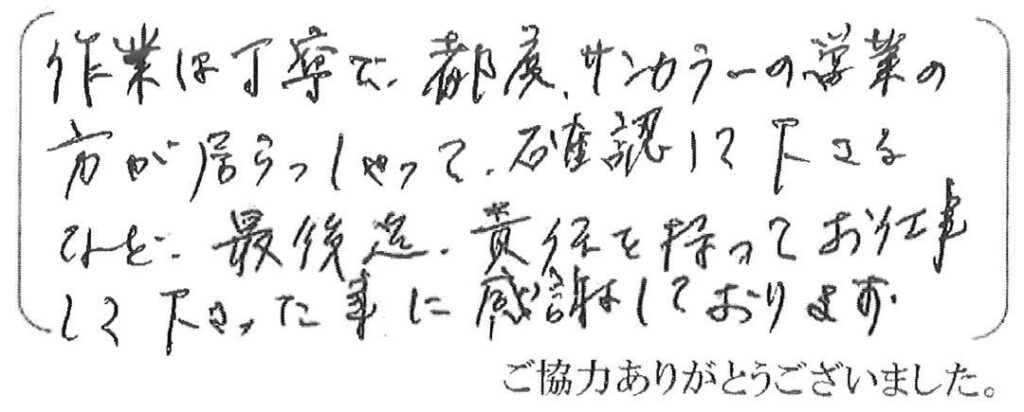 作業は丁寧で、都度、サンカラーの営業の
方が居らっしゃって、確認して下さる
など、最後迄、責任を持ってお仕事
して下さった事に感謝しております。
ご協力ありがとうございました。